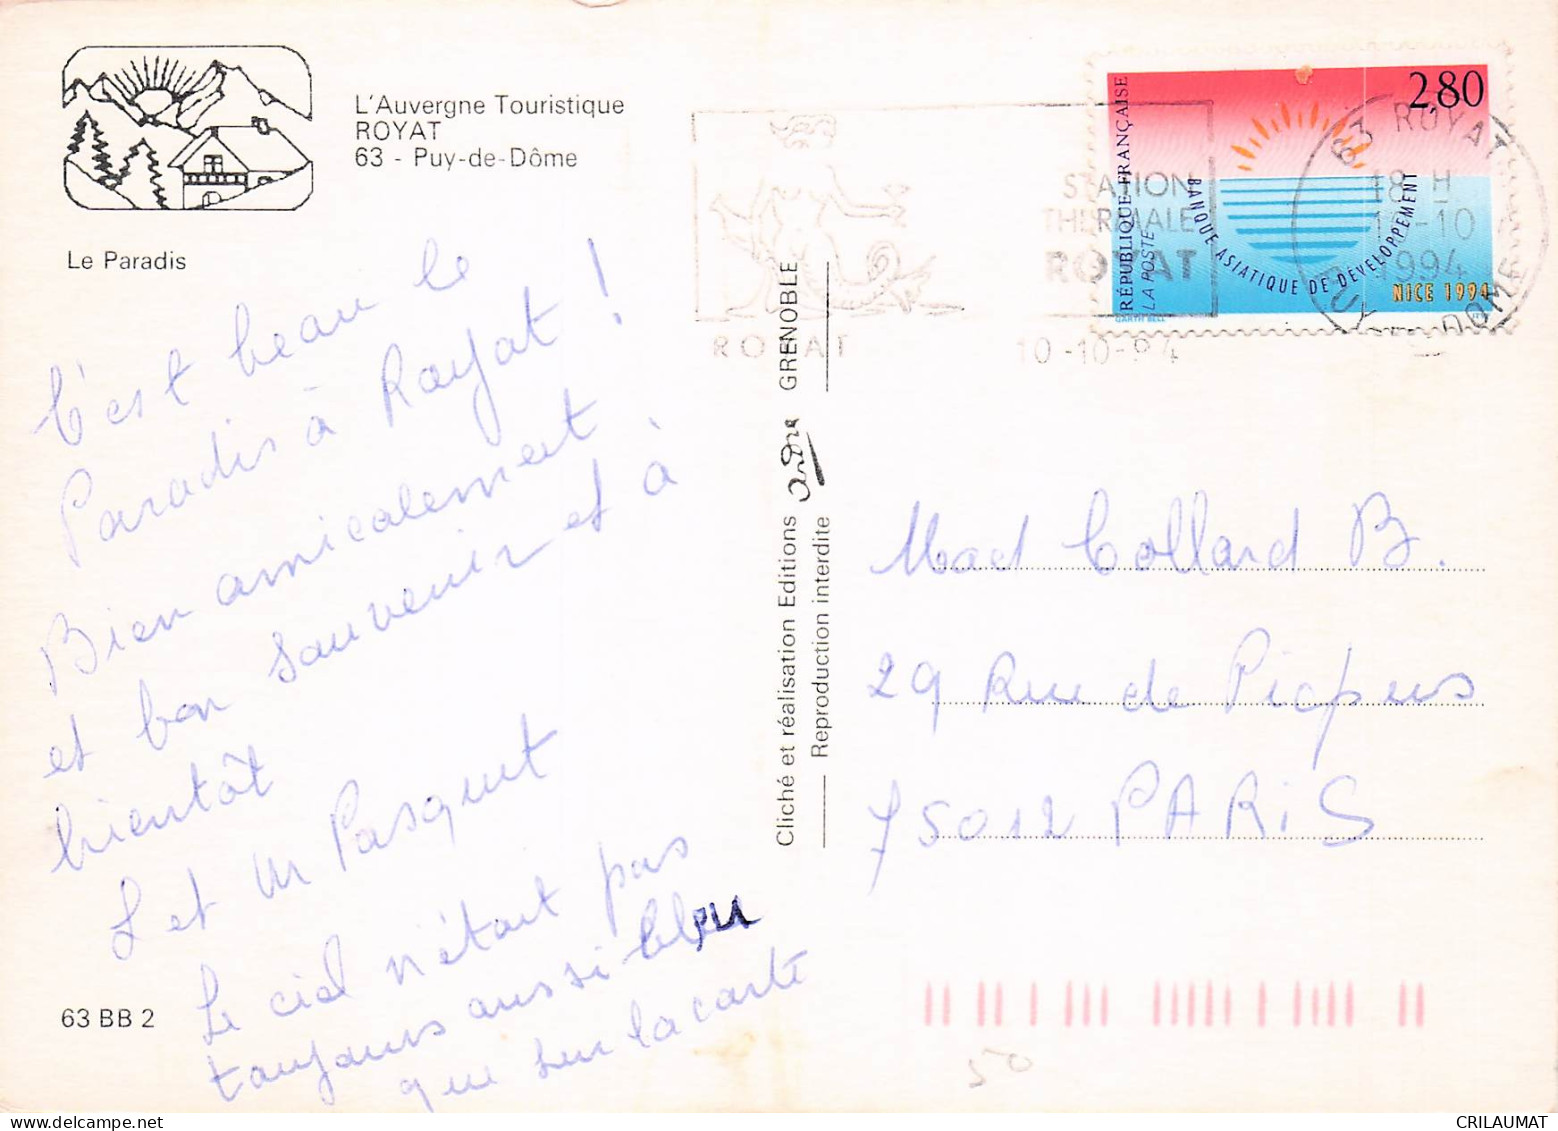 L'Auvergne Touristique
ROYAT
63 - Puy-de-Dôme
Le Paradis
C'est beau le
Paradis à Royat !
Bien amicalement
et bon souvenir et à
bientôt
et M Pasquet
Le ciel n'était pas
toujours aussi bleu
que sur la carte
63 BB 2
Cliché et réalisation Editions André GRENOBLE
Reproduction interdite
STATION
THERMALE
ROYAT
ROYAT
10-10-94
63 ROYAT
18 H
10-10
1994
PUY DE DOME
2,80
RÉPUBLIQUE FRANÇAISE
LA POSTE
BANQUE ASIATIQUE DE DÉVELOPPEMENT
NICE 1994
GARTH BELL
Collard B.
29 Rue de Picpus
75012 PARiS
50
CRILAUMAT